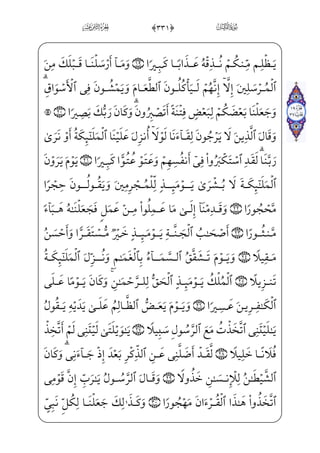 ﴿٣٣١﴾
يَظْلِم مِّنكُمْ نُذِقْهُ عَذَابًا كَبِيرًا ۝ وَمَآ أَرْسَلْنَا قَبْلَكَ مِنَ
ٱلْمُرْسَلِينَ إِلَّآ إِنَّهُمْ لَيَأْكُلُونَ ٱلطَّعَامَ وَيَمْشُونَ فِى ٱلْأَسْوَاقِ ۗ
وَجَعَلْنَا بَعْضَكُمْ لِبَعْضٍ فِتْنَةً أَتَصْبِرُونَ ۗ وَكَانَ رَبُّكَ بَصِيرًا ۝
وَقَالَ ٱلَّذِينَ لَا يَرْجُونَ لِقَآءَنَا لَوْلَآ أُنزِلَ عَلَيْنَا ٱلْمَلَٰٓئِكَةُ أَوْ نَرَىٰ
رَبَّنَا ۗ لَقَدِ ٱسْتَكْبَرُوا۟ فِىٓ أَنفُسِهِمْ وَعَتَوْ عُتُوًّا كَبِيرًا ۝ يَوْمَ يَرَوْنَ
ٱلْمَلَٰٓئِكَةَ لَا بُشْرَىٰ يَوْمَئِذٍ لِّلْمُجْرِمِينَ وَيَقُولُونَ حِجْرًا
مَّحْجُورًا ۝ وَقَدِمْنَآ إِلَىٰ مَا عَمِلُوا۟ مِنْ عَمَلٍ فَجَعَلْنَٰهُ هَبَآءً
مَّنثُورًا ۝ أَصْحَٰبُ ٱلْجَنَّةِ يَوْمَئِذٍ خَيْرٌ مُّسْتَقَرًّا وَأَحْسَنُ
مَقِيلًا ۝ وَيَوْمَ تَشَقَّقُ ٱلسَّمَآءُ بِٱلْغَمَٰمِ وَنُزِّلَ ٱلْمَلَٰٓئِكَةُ
تَنزِيلًا ۝ ٱلْمُلْكُ يَوْمَئِذٍ ٱلْحَقُّ لِلرَّحْمَٰنِ ۚ وَكَانَ يَوْمًا عَلَى
ٱلْكَٰفِرِينَ عَسِيرًا ۝ وَيَوْمَ يَعَضُّ ٱلظَّالِمُ عَلَىٰ يَدَيْهِ يَقُولُ
يَٰلَيْتَنِى ٱتَّخَذْتُ مَعَ ٱلرَّسُولِ سَبِيلًا ۝ يَٰوَيْلَتَىٰ لَيْتَنِى لَمْ أَتَّخِذْ
فُلَانًا خَلِيلًا ۝ لَّقَدْ أَضَلَّنِى عَنِ ٱلذِّكْرِ بَعْدَ إِذْ جَآءَنِى ۗ وَكَانَ
ٱلشَّيْطَٰنُ لِلْإِنسَٰنِ خَذُولًا ۝ وَقَالَ ٱلرَّسُولُ يَٰرَبِّ إِنَّ قَوْمِى
ٱتَّخَذُوا۟ هَٰذَا ٱلْقُرْءَانَ مَهْجُورًا ۝ وَكَذَٰلِكَ جَعَلْنَا لِكُلِّ نَبِىٍّ